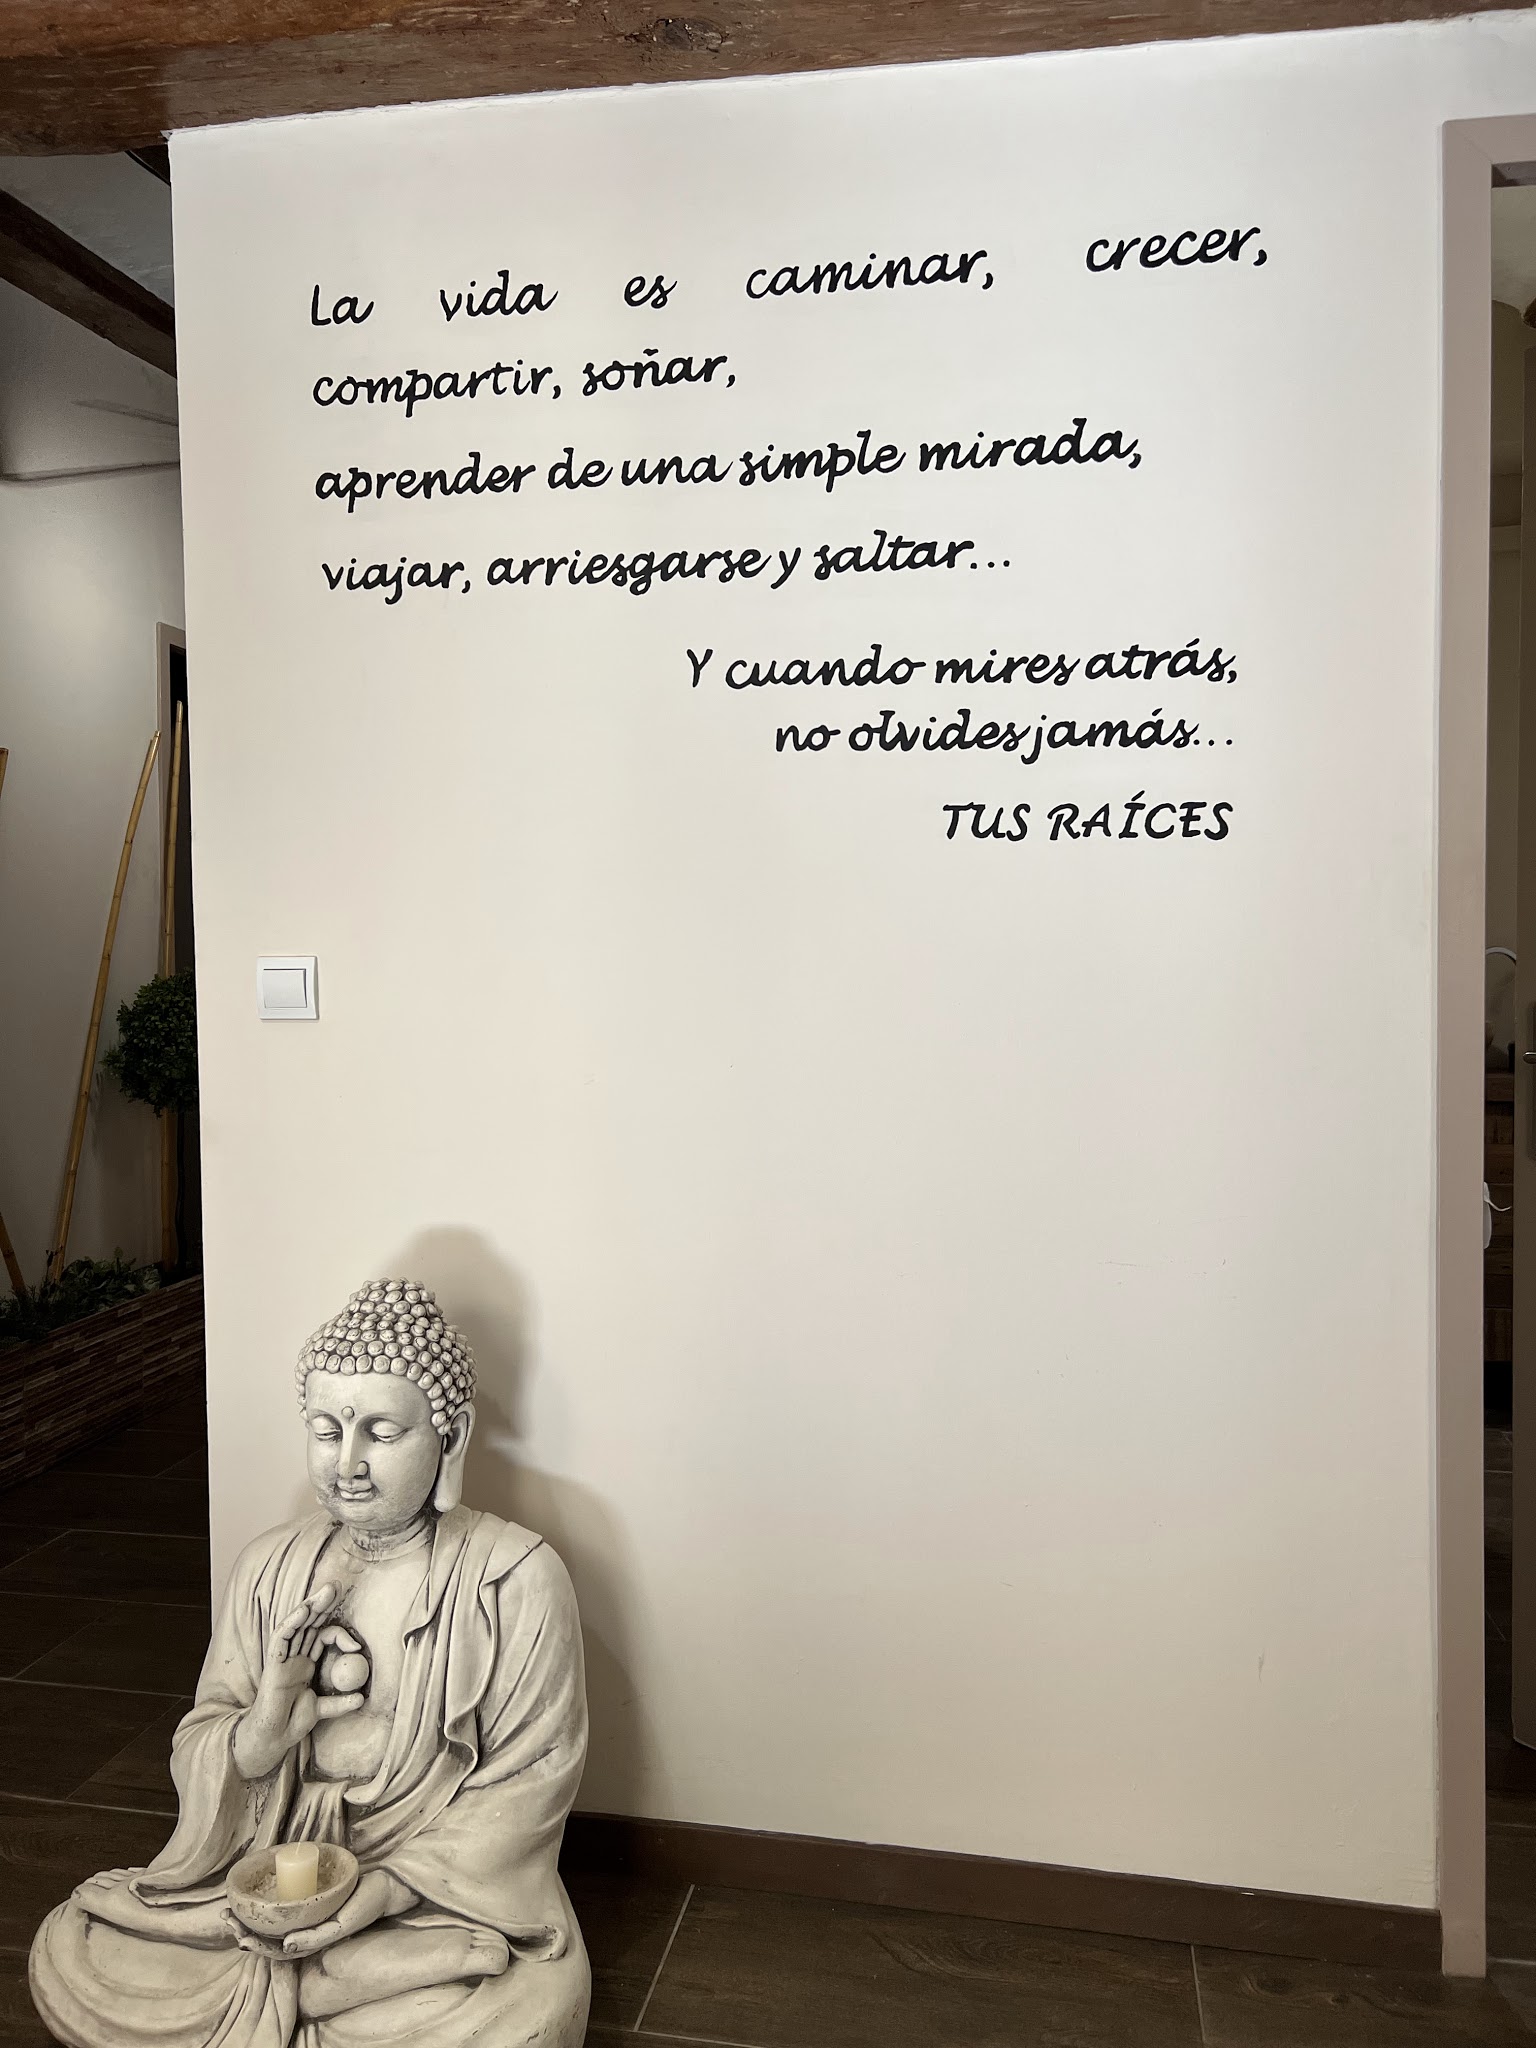 La vida es caminar, crecer,
compartir, soñar,
aprender de una simple mirada,
viajar, arriesgarse y saltar...
Y cuando mires atrás,
no olvides jamás...
TUS RAÍCES